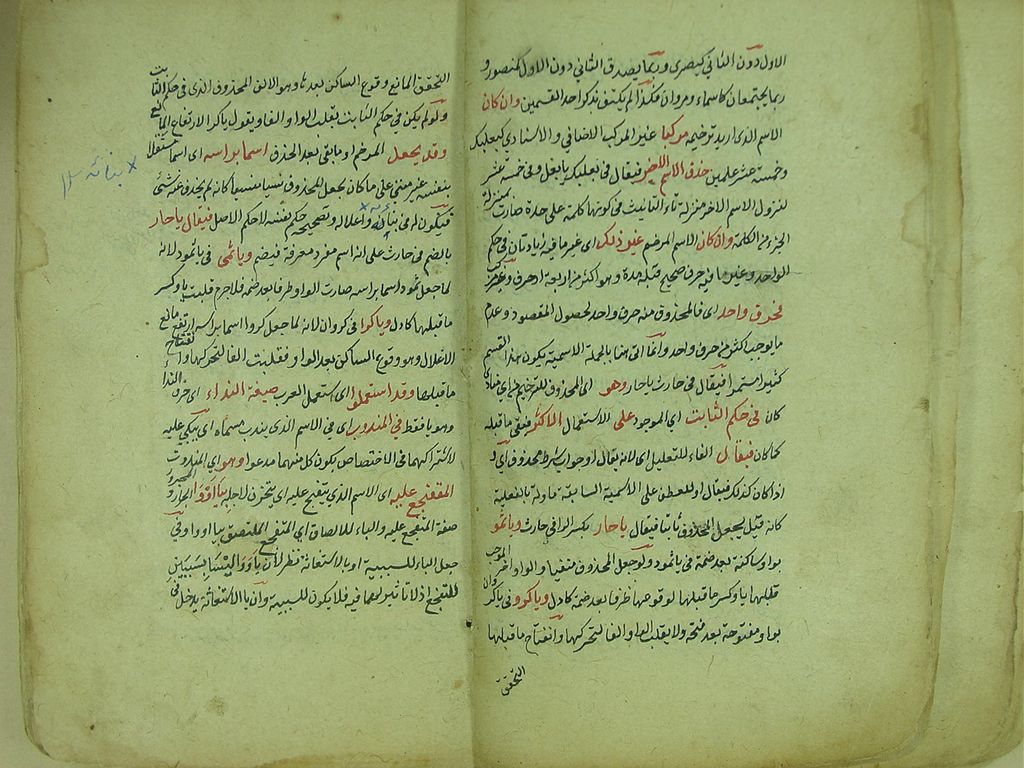 الاول دون الثاني كبصرى وبما يصدق الثاني دون الاول كمنصور و
ربما يجتمعان كاسماء ومروان فلذا لم يكتف بذكر احد القسمين وان كان
الاسم الذى اريد ترخيمه مركبا غير المركب الاضافي والاسنادي كبعلبك
وخمسة عشر علمين حذف الاسم الاخير فيقال في بعلبك يا بعل وفي خمسة عشر يا خمسة
لنزول الاسم الاخر منزلة تاء التانيث في كونها كلمة على حدة صارت بمنزلة
الجزء من الكلمة وان كان الاسم المرخم غير ذلك اى غير ما فيه زيادتان في حكم
الواحد وغير ما فيه حرف صحيح قبله مدة وهو اكثر من اربعة احرف وغير
فحرف واحد اى فالمحذوف منه حرف واحد لحصول المقصود وعدم
ما يوجب اكثر من حرف واحد وانما اتى هنا بالجملة الاسمية يكون هذا القسم
كثيرا مستمرا فيقال في حارث يا حار وهو اى المحذوف للترخيم
كان في حكم الثابت اي الموجود على الاستعمال الاكثر فيبقى ما قبله
كما كان فيقال الفاء للتعليل اى لانه يقال او جواب شرط محذوف اى
اذا كان كذلك فيقال او للعطف على الاسمية السابقة ماولة بالفعلية
كانه قيل يجعل المحذوف ثابتا فيقال يا حار بكسر الراء في حارث ويا ثمو
بواو ساكنة بعد ضمة في يا ثمود ولو جعل المحذوف منفيا والواو اخر
قلبها ياء وكسر ما قبلها لوقوعها طرفا بعد ضمة كادل ويا كرو في يا كروان
بواو مفتوحة بعد فتحة ولا يقلب الواو الفا لتحركها وانفتاح ما قبلها
التحقق
التحقق المانع وقوع الساكن بعدها وهو الالف المحذوف الذى في حكم الثابت
ولو لم يكن في حكم الثابت يقلب الواو الفا ويقول يا كرا لارتفاع المانع
وقد يجعل المرخم او ما بقى بعد الحذف اسما براسه اى اسما مستقلا
بنفسه غير مبنى على ما كان بجعل المحذوف نسيا منسيا كانه لم يحذف عنه شئ
فيكون له في بنائه واعلاله وتصحيحه حكم نفسه لا حكم الاصل فيقال يا حار
بنائه ١٢
بالضم في حارث على انه اسم مفرد معرفة فيضم ويا ثمى في يا ثمود لانه
لما جعل ثمو اسما براسه صارت الواو طرفا بعد ضمه فلا جرم قلبت ياء وكسر
ما قبلها كادل ويا كرا في كروان لانه لما جعل كروا اسما براسه ارتفع مانع
الاعلال وهو وقوع الساكن بعد الواو فقلبت الفا لتحركها وانفتاح
ما قبلها وقد استعملوا اى استعمل العرب صيغة النداء اى حرف النداء
وهو يا فقط في المندوب اى في الاسم الذى يندب مسماه اى يبكى عليه
لاشتراكهما في الاختصاص بكون كل منهما مدعوا وهو اي المندوب
المتفجع عليه اى الاسم الذي يتفجع عليه اى يتحزن لاجله بيا او وا الجار والمجرور
صفة المتفجع عليه والباء للالصاق اى المتفجع الملتصق بيا او وا وفي
جعل الباء للسببية او بالاستعانة نظر لان يا و وا ليستا بسببين
للتفجع اذ لا تاثير لهما فيه فلا يكون للسببية وان باء الاستعانة يدخل في